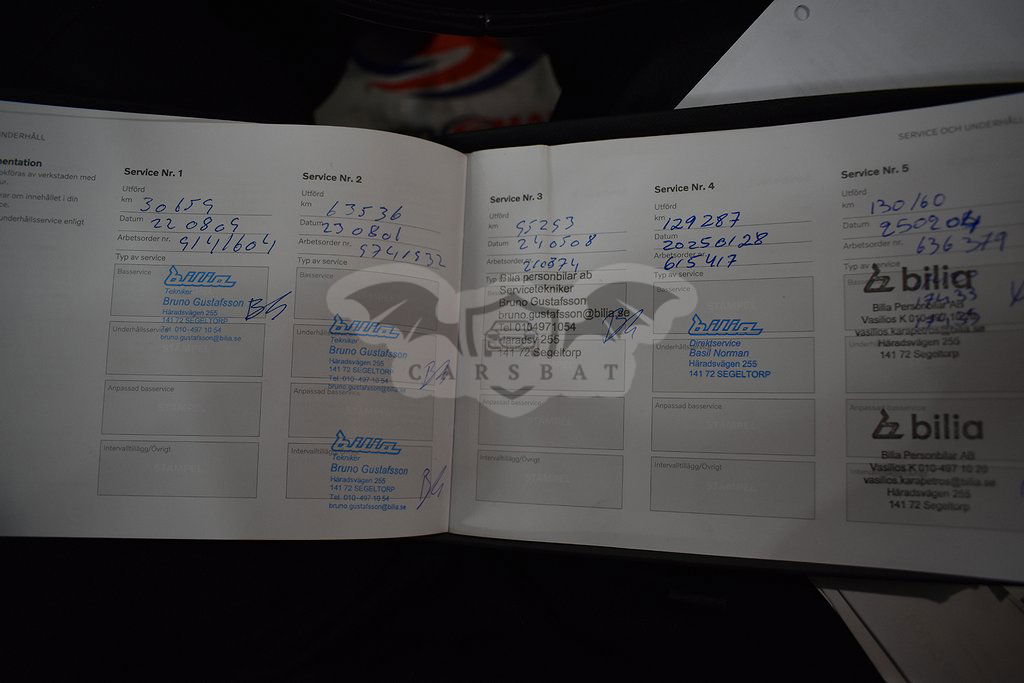 NDERHÅLL
entation
okföras av verkstaden med
ur.
rar om innehållet i din
ce.
underhållsservice enligt
Service Nr. 1
Utförd
km 30659
Datum 220809
Arbetsorder nr. 9141604
Typ av service
Basservice
bilia
Tekniker
Bruno Gustafsson
Häradsvägen 255
141 72 SEGELTORP
Tel. 010-497 10 54
bruno.gustafsson@bilia.se
Underhållsservice
STÄMPEL
Anpassad basservice
STÄMPEL
Intervalltillägg/Övrigt
STÄMPEL
Service Nr. 2
Utförd
km 63536
Datum 230801
Arbetsorder nr. 9741932
Typ av service
Basservice
bilia
Tekniker
Bruno Gustafsson
Häradsvägen 255
141 72 SEGELTORP
Tel. 010-497 10 54
bruno.gustafsson@bilia.se
Anpassad basservice
STÄMPEL
bilia
Tekniker
Bruno Gustafsson
Häradsvägen 255
141 72 SEGELTORP
Tel. 010-497 10 54
bruno.gustafsson@bilia.se
Service Nr. 3
Utförd
km 95293
Datum 240508
Arbetsorder nr.
210874
Bilia personbilar ab
Servicetekniker
Bruno Gustafsson
bruno.gustafsson@bilia.se
Tel 0104971054
Haradsv 255
141 72 Segeltorp
Anpassad basservice
STÄMPEL
Intervalltillägg/Övrigt
STÄMPEL
Service Nr. 4
Utförd
km 129287
Datum 20250128
Arbetsorder nr. 615417
Typ av service
Basservice
STÄMPEL
bilia
Direktservice
Basil Norman
Häradsvägen 255
141 72 SEGELTORP
Anpassad basservice
STÄMPEL
Intervalltillägg/Övrigt
STÄMPEL
SERVICE OCH UNDERHÅLL
Service Nr. 5
Utförd
km 130160
Datum 250204
Arbetsorder nr. 636379
Typ av service
bilia
Bilia Personbilar AB
Vasilios K
vasilios.karapetros@bilia.se
Häradsvägen 255
141 72 Segeltorp
bilia
Bilia Personbilar AB
Vasilios K 010-497 10 20
vasilios.karapetros@bilia.se
Häradsvägen 255
141 72 Segeltorp
CARSBAT